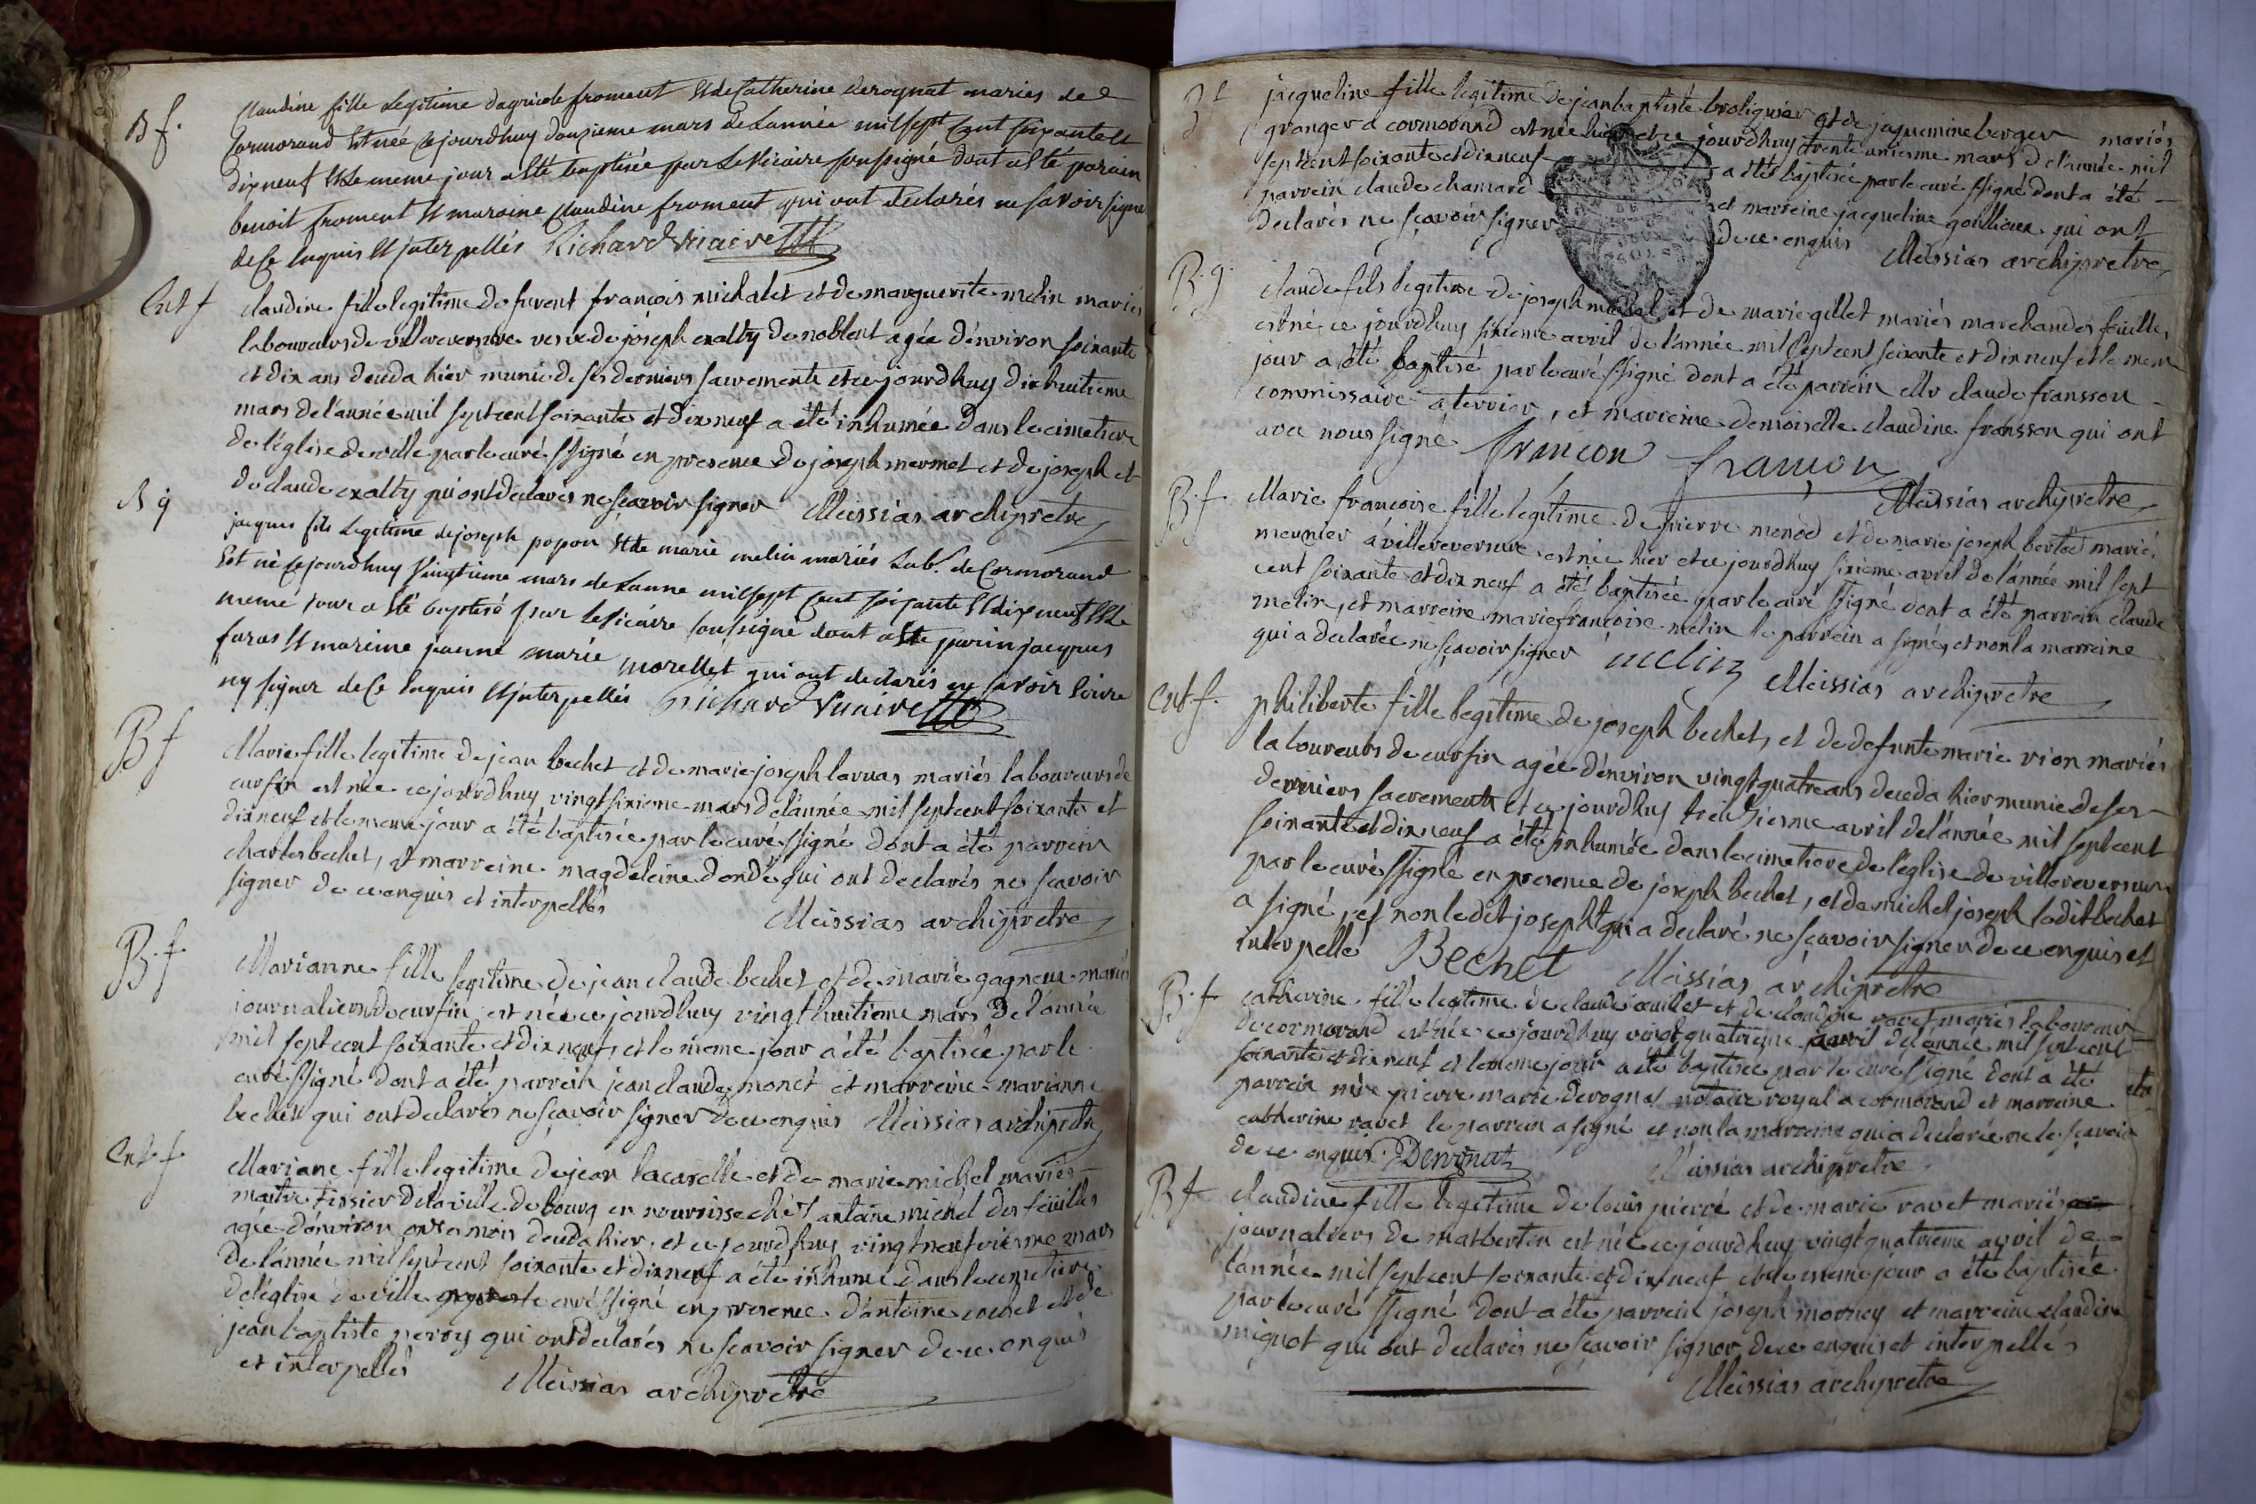 B f.
Claudine fille Legitime dagricole froment Et de Catherine derognat mariés de
Cormorand Est née Cejourdhuy douzieme mars de Lannée mil sept Cent soixante et
dix neuf Et Le meme jour a Eté baptisée par Le Vicaire soussigné dont a Eté parain
benoit froment Et maraine Claudine froment qui ont declarés ne savoir signer
de Ce Enquis Et jnterpellés Richard Vicaire
Ent f
claudine fille legitime de furent françois michalet et de marguerite melin mariés
laboureurs de villereversure veuve de joseph exalty de noblent agée d'environ soixante
et dix ans deceda hier munie de ses derniers sacrements et ce jourdhuy dixhuitieme
mars de l'année mil sept cent soixante et dix neuf a été inhumée dans le cimetiere
de l'église de ville par le curé ssigné en presence de joseph mermet et de joseph et
de claude exalty qui ont declarés ne sçavoir signer Meissias archipretre
B g
jacques fils Legitime de joseph popon Et de marie melin mariés Lab. de Cormorand
Est né Cejourdhuy vingtieme mars de Lanne mil sept Cent soixante Et dix neuf Et Le
meme jour a Eté baptisé par Le Vicaire soussigné dont a Eté parin jacques
furas Et mareine jeanne marie morellet qui ont declarés ne savoir Ecrire
ny signer de Ce Enquis Et jnterpellés Richard Vicaire
B f
Marie fille legitime de jean bechet et de marie joseph laruas mariés laboureurs de
cursin est née ce jourdhuy vingt sixieme mars de l'année mil sept cent soixante et
dix neuf et le meme jour a été baptisée par le curé ssigné dont a été parrein
charles bechet, et marreine magdeleine dondé qui ont declarés ne sçavoir
signer de ce enquis et interpellés
Meissias archipretre
B. f
Marianne fille legitime de jean claude bechet et de marie gagneux mariés
journaliers de cursin est née ce jourdhuy vingt huitieme mars de l'année
mil sept cent soixante et dix neuf, et le meme jour a été baptisée par le
curé ssigné dont a été parrein jean claude monet et marreine marianne
bechet qui ont declarés ne sçavoir signer de ce enquis Meissias archipretre
Ent. f
Mariane fille legitime de jean lacarelle et de marie michel mariés
maitre tissier de la ville de bourg en nourrisse chés antoine michel des feüilles
agée d'environ onze mois deceda hier, et ce jourdhuy vingt neuvieme mars
de l'année mil sept cent soixante et dix neuf a été inhumé dans le cimetiere
de l'église de ville par le curé ssigné en presence d'antoine cochet et de
jean baptiste perroy qui ont declarés ne sçavoir signer de ce enquis
et interpellés
Meissias archipretre
B f
jacqueline fille legitime de jean baptiste broliquier et de jaquemine berger mariés
granger a cormorand est née hier et ce jourdhuy trente unieme mars de l'année mil
sept cent soixante et dix neuf a été baptisée par le curé ssigné dont a été
parrein claude chamard et marreine jacqueline goulliaux qui ont
declarés ne sçavoir signer de ce enquis
Meissias archipretre
B. g.
claude fils legitime de joseph michel et de marie gillet mariés marchandes feuilles
est né ce jourdhuy sixieme avril de l'année mil sept cent soixante et dix neuf et le meme
jour a été baptisé par le curé ssigné dont a été parrein Mr claude fransson
commissaire a terrier, et marreine demoiselle claudine fransson qui ont
avec nous signé francon francon
Meissias archipretre
B. f.
Marie françoise fille legitime de pierre monod et de marie joseph bertod mariés
meunier à villereversure est née hier et ce jourdhuy sixieme avril de l'année mil sept
cent soixante et dix neuf a été baptisée par le curé ssigné dont a été parrein claude
melin, et marreine marie françoise melin le parrein a signé, et non la marreine
qui a declarée ne sçavoir signer melin Meissias archipretre
Ent f.
philiberte fille legitime de joseph bechet, et de defunte marie vion mariés
laboureurs de cursin agée d'environ vingt quatre ans deceda hier munie de ses
derniers sacrements et ce jourdhuy treizieme avril de l'année mil sept cent
soixante et dix neuf a été inhumée dans le cimetiere de l'église de villereversure
par le curé ssigné en presence de joseph bechet, et de michel joseph ledit bechet
a signé, et non le dit joseph qui a declaré ne sçavoir signer de ce enquis et
interpellé Bechet Meissias archipretre
B. f
catherine fille legitime de claude œuillet et de claudine ravet mariés laboureur
de cormorand est née ce jourdhuy vingt quatrieme avril de l'année mil sept cent
soixante et dix neuf et le meme jour a été baptisée par le curé ssigné dont a été
parrein mre pierre marie derognat notaire royal a cormorand et marreine
catherine ravet le parrein a signé et non la marreine qui a declarée ne le sçavoir
de ce enquis. Derognat
Meissias archipretre
B f
claudine fille legitime de louis pierre et de marie ravet mariés
journaliers de matbertin est née ce jourdhuy vingt quatrieme avril de
l'année mil sept cent soixante et dix neuf et le meme jour a été baptisée
par le curé ssigné dont a été parrein joseph mornay et marreine claudine
mignot qui ont declarés ne sçavoir signer de ce enquis et interpellés
Meissias archipretre